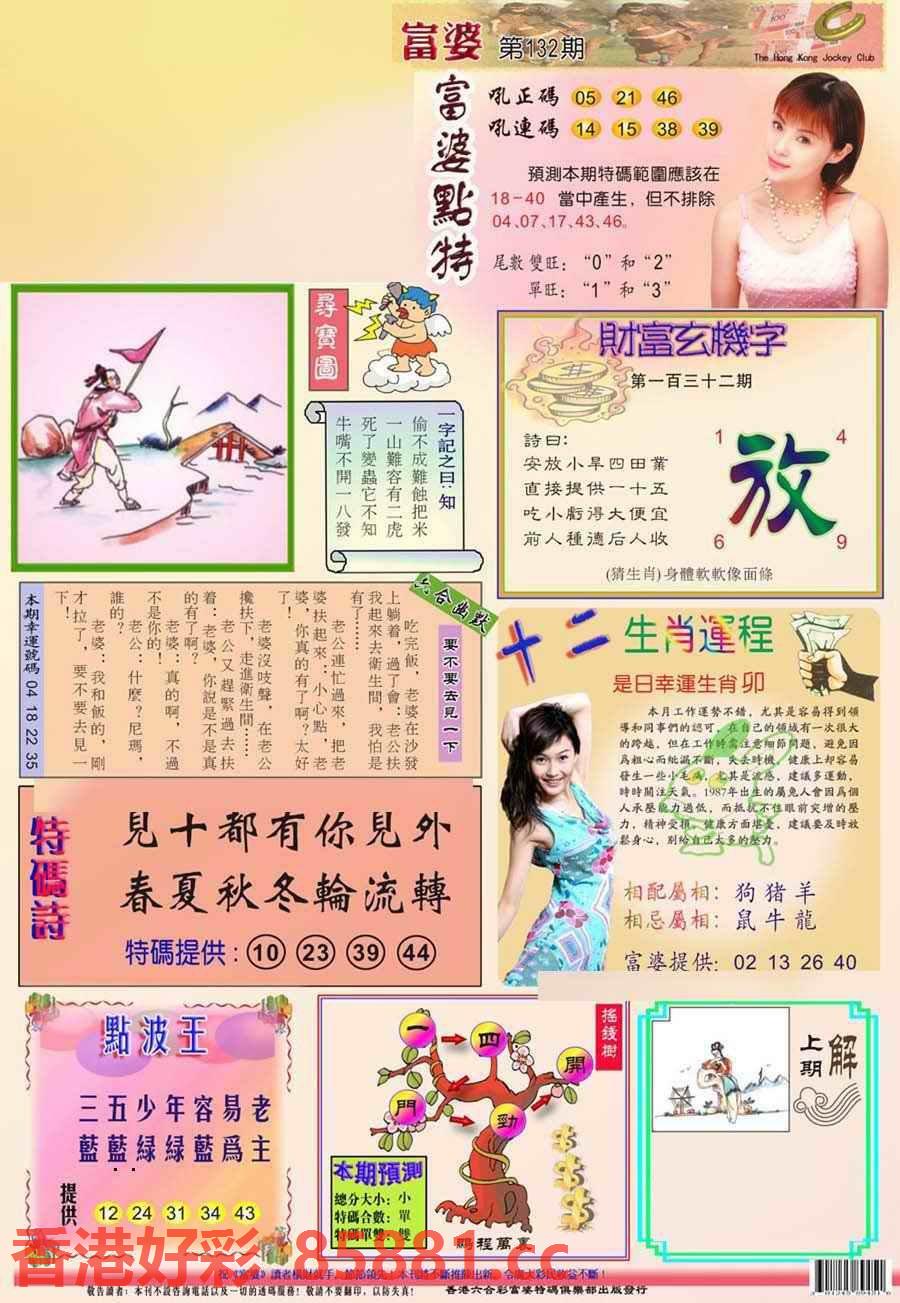 富婆 第132期
The Hong Kong Jockey Club
富婆點特
吼正碼 05 21 46
吼連碼 14 15 38 39
預測本期特碼範圍應該在
18-40 當中產生，但不排除
04、07、17、43、46。
尾數雙旺：“0”和“2”
單旺：“1”和“3”
尋寶圖
一字記之曰：知
偷不成難蝕把米
一山難容有二虎
死了變蟲它不知
牛嘴不開一八發
財富玄機字
第一百三十二期
詩曰：
安放小早四田業
直接提供一十五
吃小虧得大便宜
前人種德后人收
1 4
放
6 9
(猜生肖)身體軟軟像面條
六合幽默
要不要去見一下
吃完飯，老婆在沙發
上躺着，過了會：老公扶
我起來去衛生間，我怕是
有了……
老公連忙過來，把老
婆扶起來：小心點，老
婆，你真的有了啊？太好
了！
老婆沒吱聲，在老公
攙扶下，走進衛生間……
老公又趕緊過去扶
着：老婆，你說是不是真
的有了啊？
老婆：真的啊，不過
不是你的！
老公：什麼？尼瑪，
誰的？
老婆：我和飯的，剛
才拉了，要不要去見一
下！
本期幸運號碼 04 18 22 35
十二生肖運程
是日幸運生肖 卯
本月工作運勢不錯，尤其是容易得到領
導和同事們的認可，在自己的領域有一次很大
的跨越，但在工作時需注意細節問題，避免因
爲粗心而紕漏不斷，失去時機，健康上却容易
發生一些小毛病，尤其是流感，建議多運動，
時時關注天氣。1987年出生的屬兔人會因爲個
人承壓能力過低，而抵抗不住眼前突增的壓
力，精神受損，健康方面堪憂，建議要及時放
鬆身心，别給自己太多的壓力。
相配屬相：狗豬羊
相忌屬相：鼠牛龍
富婆提供：02 13 26 40
特碼詩
見十都有你見外
春夏秋冬輪流轉
特碼提供：10 23 39 44
點波王
三五少年容易老
藍藍緑緑藍爲主
提供 12 24 31 34 43
搖錢樹
一 四 開
門 勁
本期預測
總分大小：小
特碼合數：單
特碼單雙：雙
鵬程萬裏
上期解
香港好彩 85881.cc
敬告讀者：本刊不設咨詢電話以及一切的透碼活動！敬請不要翻印，以防失真！
香港六合彩富婆特碼俱樂部出版發行